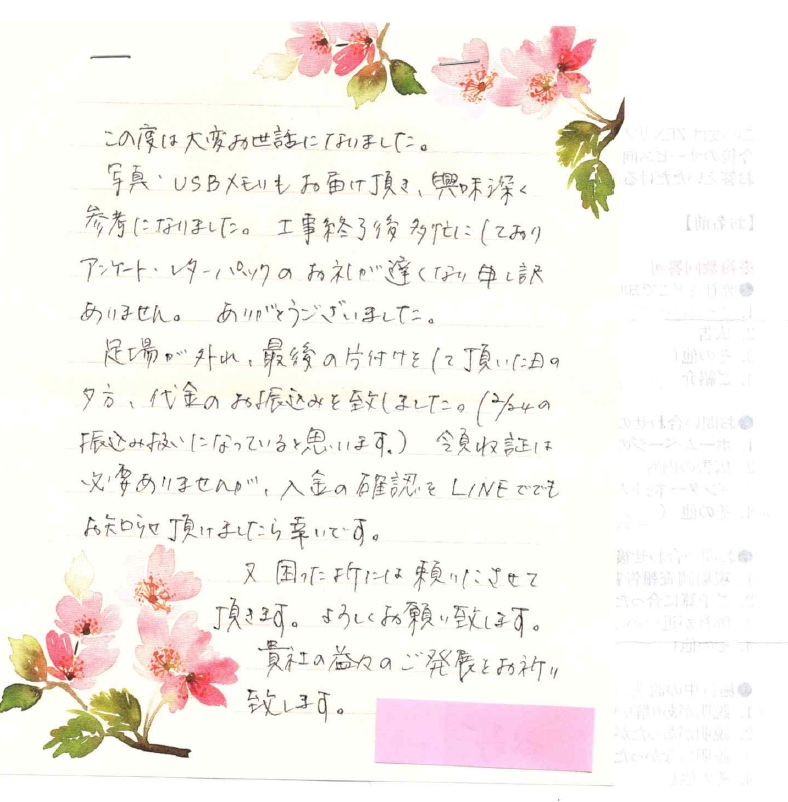 この度は大変お世話になりました。
写真・USBメモリもお届け頂き、興味深く
参考になりました。工事終了後多忙にしており
アンケート・レターパックのお礼が遅くなり申し訳
ありません。ありがとうございました。
足場が外れ、最後の片付けをして頂いた日の
夕方、代金のお振込みを致しました。(2/24の
振込み扱いになっていると思います。) 領収証は
必要ありませんが、入金の確認をLINEででも
お知らせ頂けましたら幸いです。
又困った折には頼りにさせて
頂きます。よろしくお願い致します。
貴社の益々のご発展をお祈り
致します。